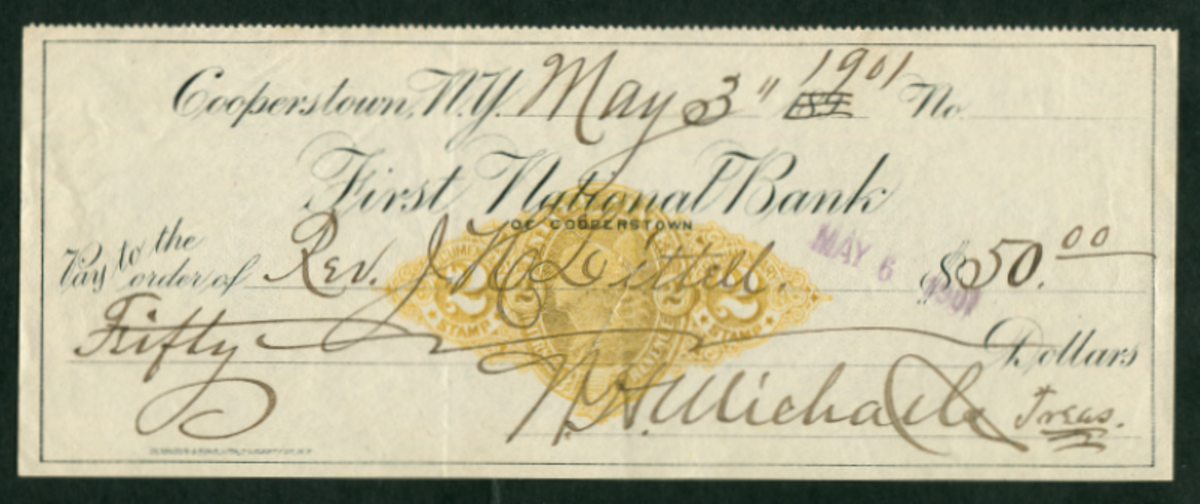 Cooperstown, N.Y. May 3" 1901 No.
First National Bank
OF COOPERSTOWN
Pay to the order of Rev. J. N. Littell. $50.00
MAY 6 1901
2 STAMP 2 2 2 STAMP
Fifty Dollars
Michaels Treas.